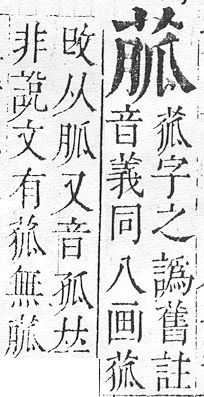 菰字之譌舊註
音義同八画菰
改从胍又音孤𠀤
非說文有菰無